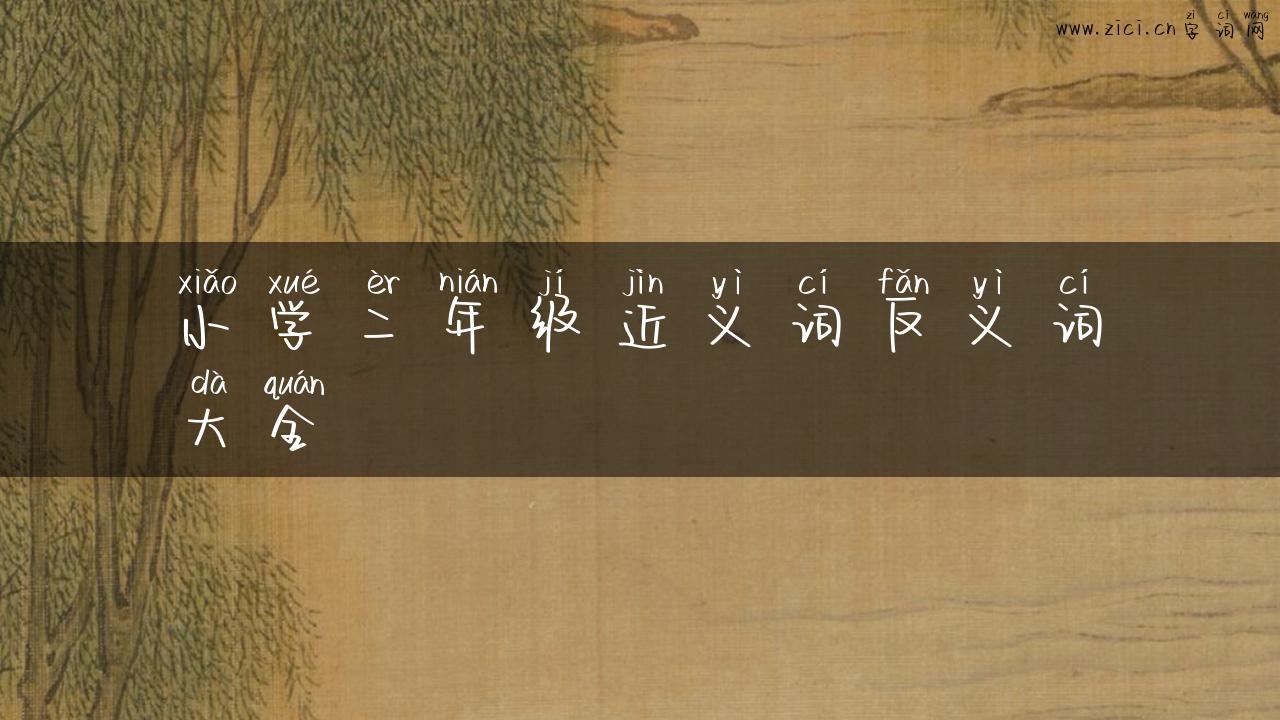 zì cí wǎng
www.zici.cn 字词网
xiǎo xué èr nián jí jìn yì cí fǎn yì cí
小学二年级近义词反义词
dà quán
大全